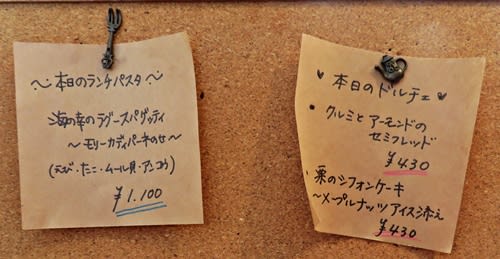 〜本日のランチパスタ〜
海の幸のラグースパゲッティ
〜モリーカディパーネのせ〜
(えび・たこ・ムール貝・アンコウ)
¥1.100
♥ 本日のドルチェ ♥
• クルミとアーモンドの
セミフレッド
¥430
栗のシフォンケーキ
〜メープルナッツアイス添え
¥430